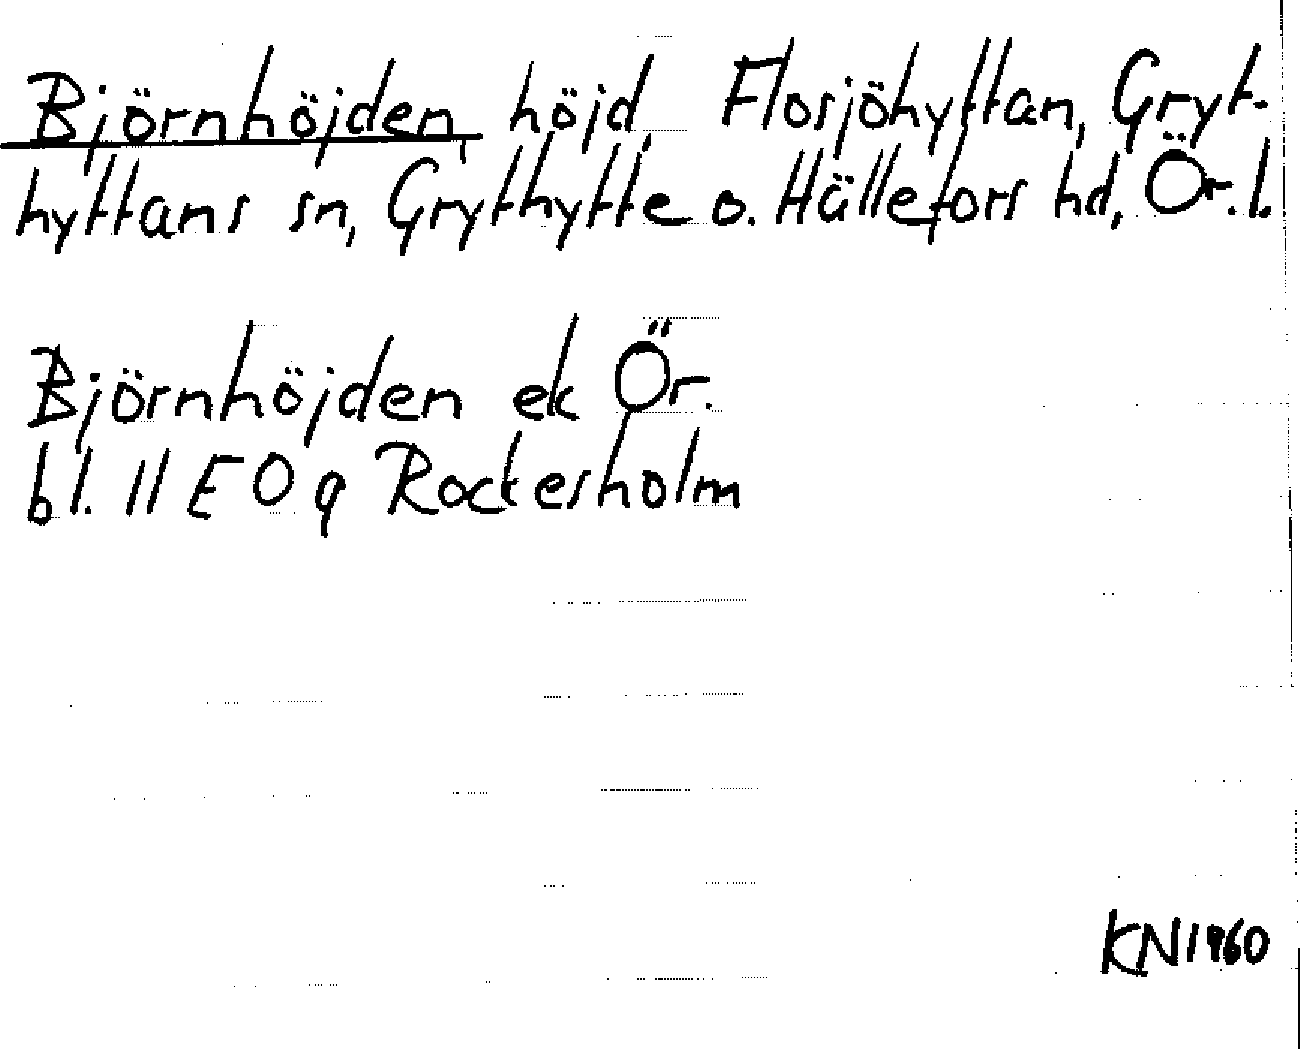 Björnhöjden, höjd, Flosjöhyttan, Gryt-
hyttans sn, Grythytte o. Hällefors hd, Ör. l.
Björnhöjden ek Ör.
bl. 11 E O g Rockesholm
KN 1960